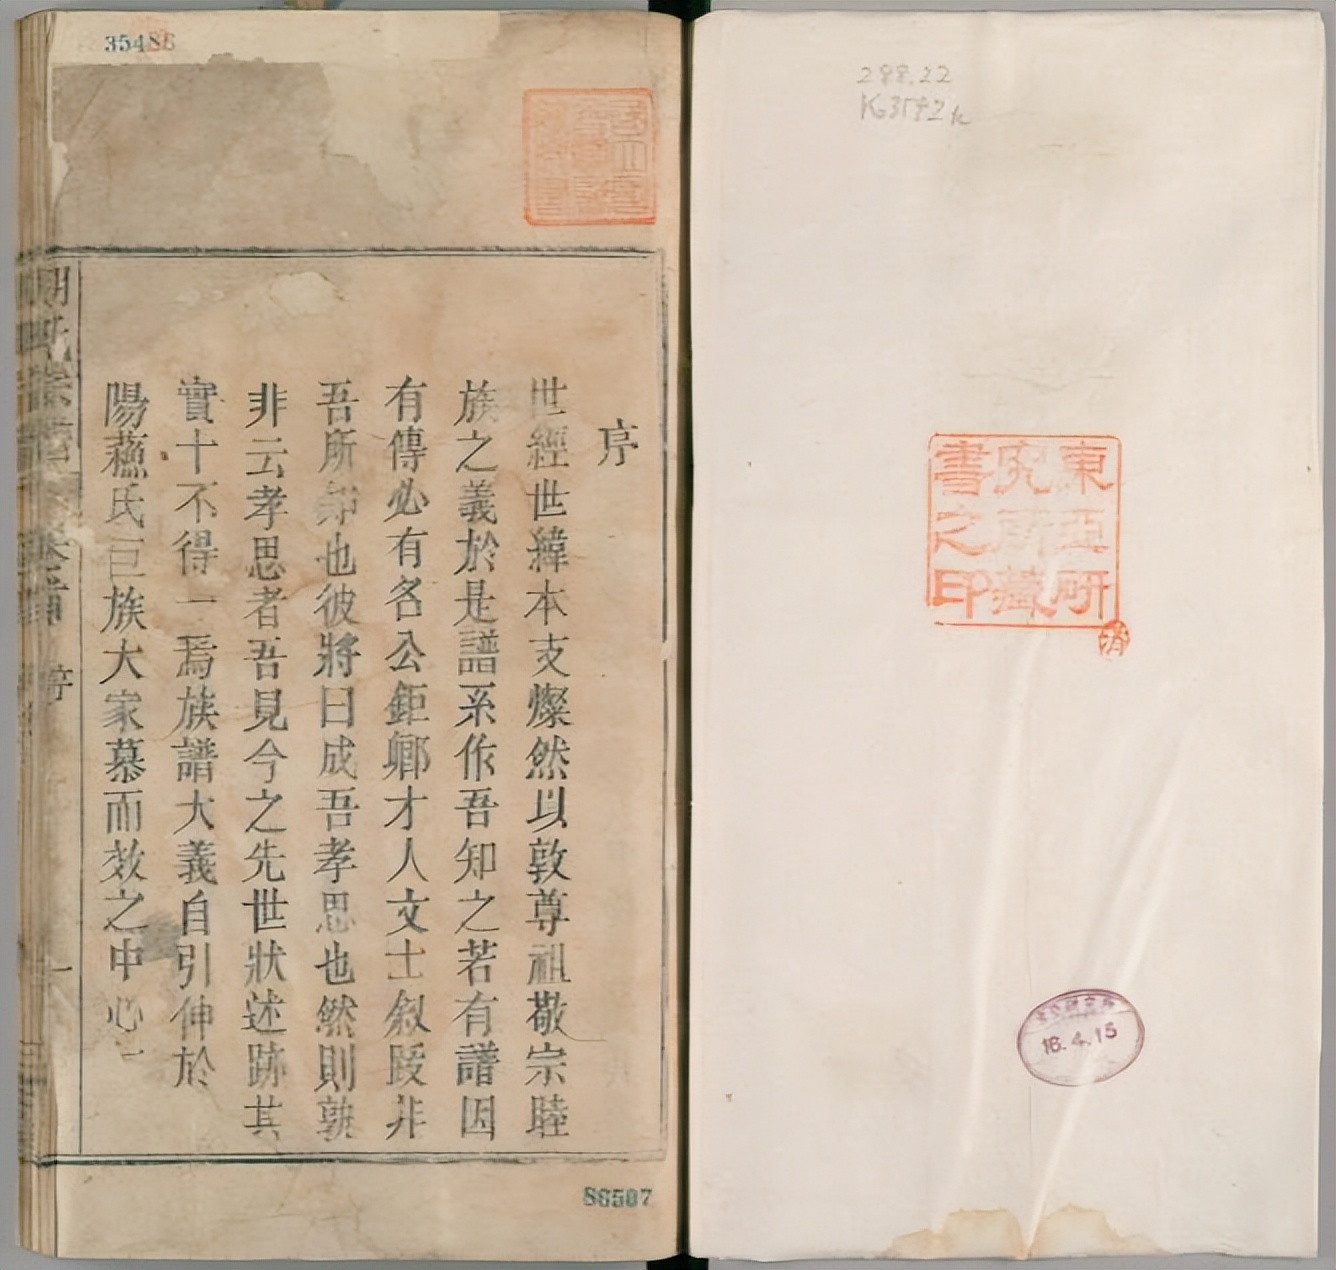 288.22
東亞研
究所藏
書之印
消
16.4.15
35486
序
世經世緯本支燦然以敦尊祖敬宗睦
族之義於是譜系作吾知之若有譜因
有傳必有名公鉅卿才人文士叙跋非
吾所知也彼將曰成吾孝思也然則孰
非云孝思者吾見今之先世狀述跡其
實十不得一焉族譜大義自引伸於
陽蘓氏巨族大家慕而效之中心
氏族譜
卷首
序
一
86507